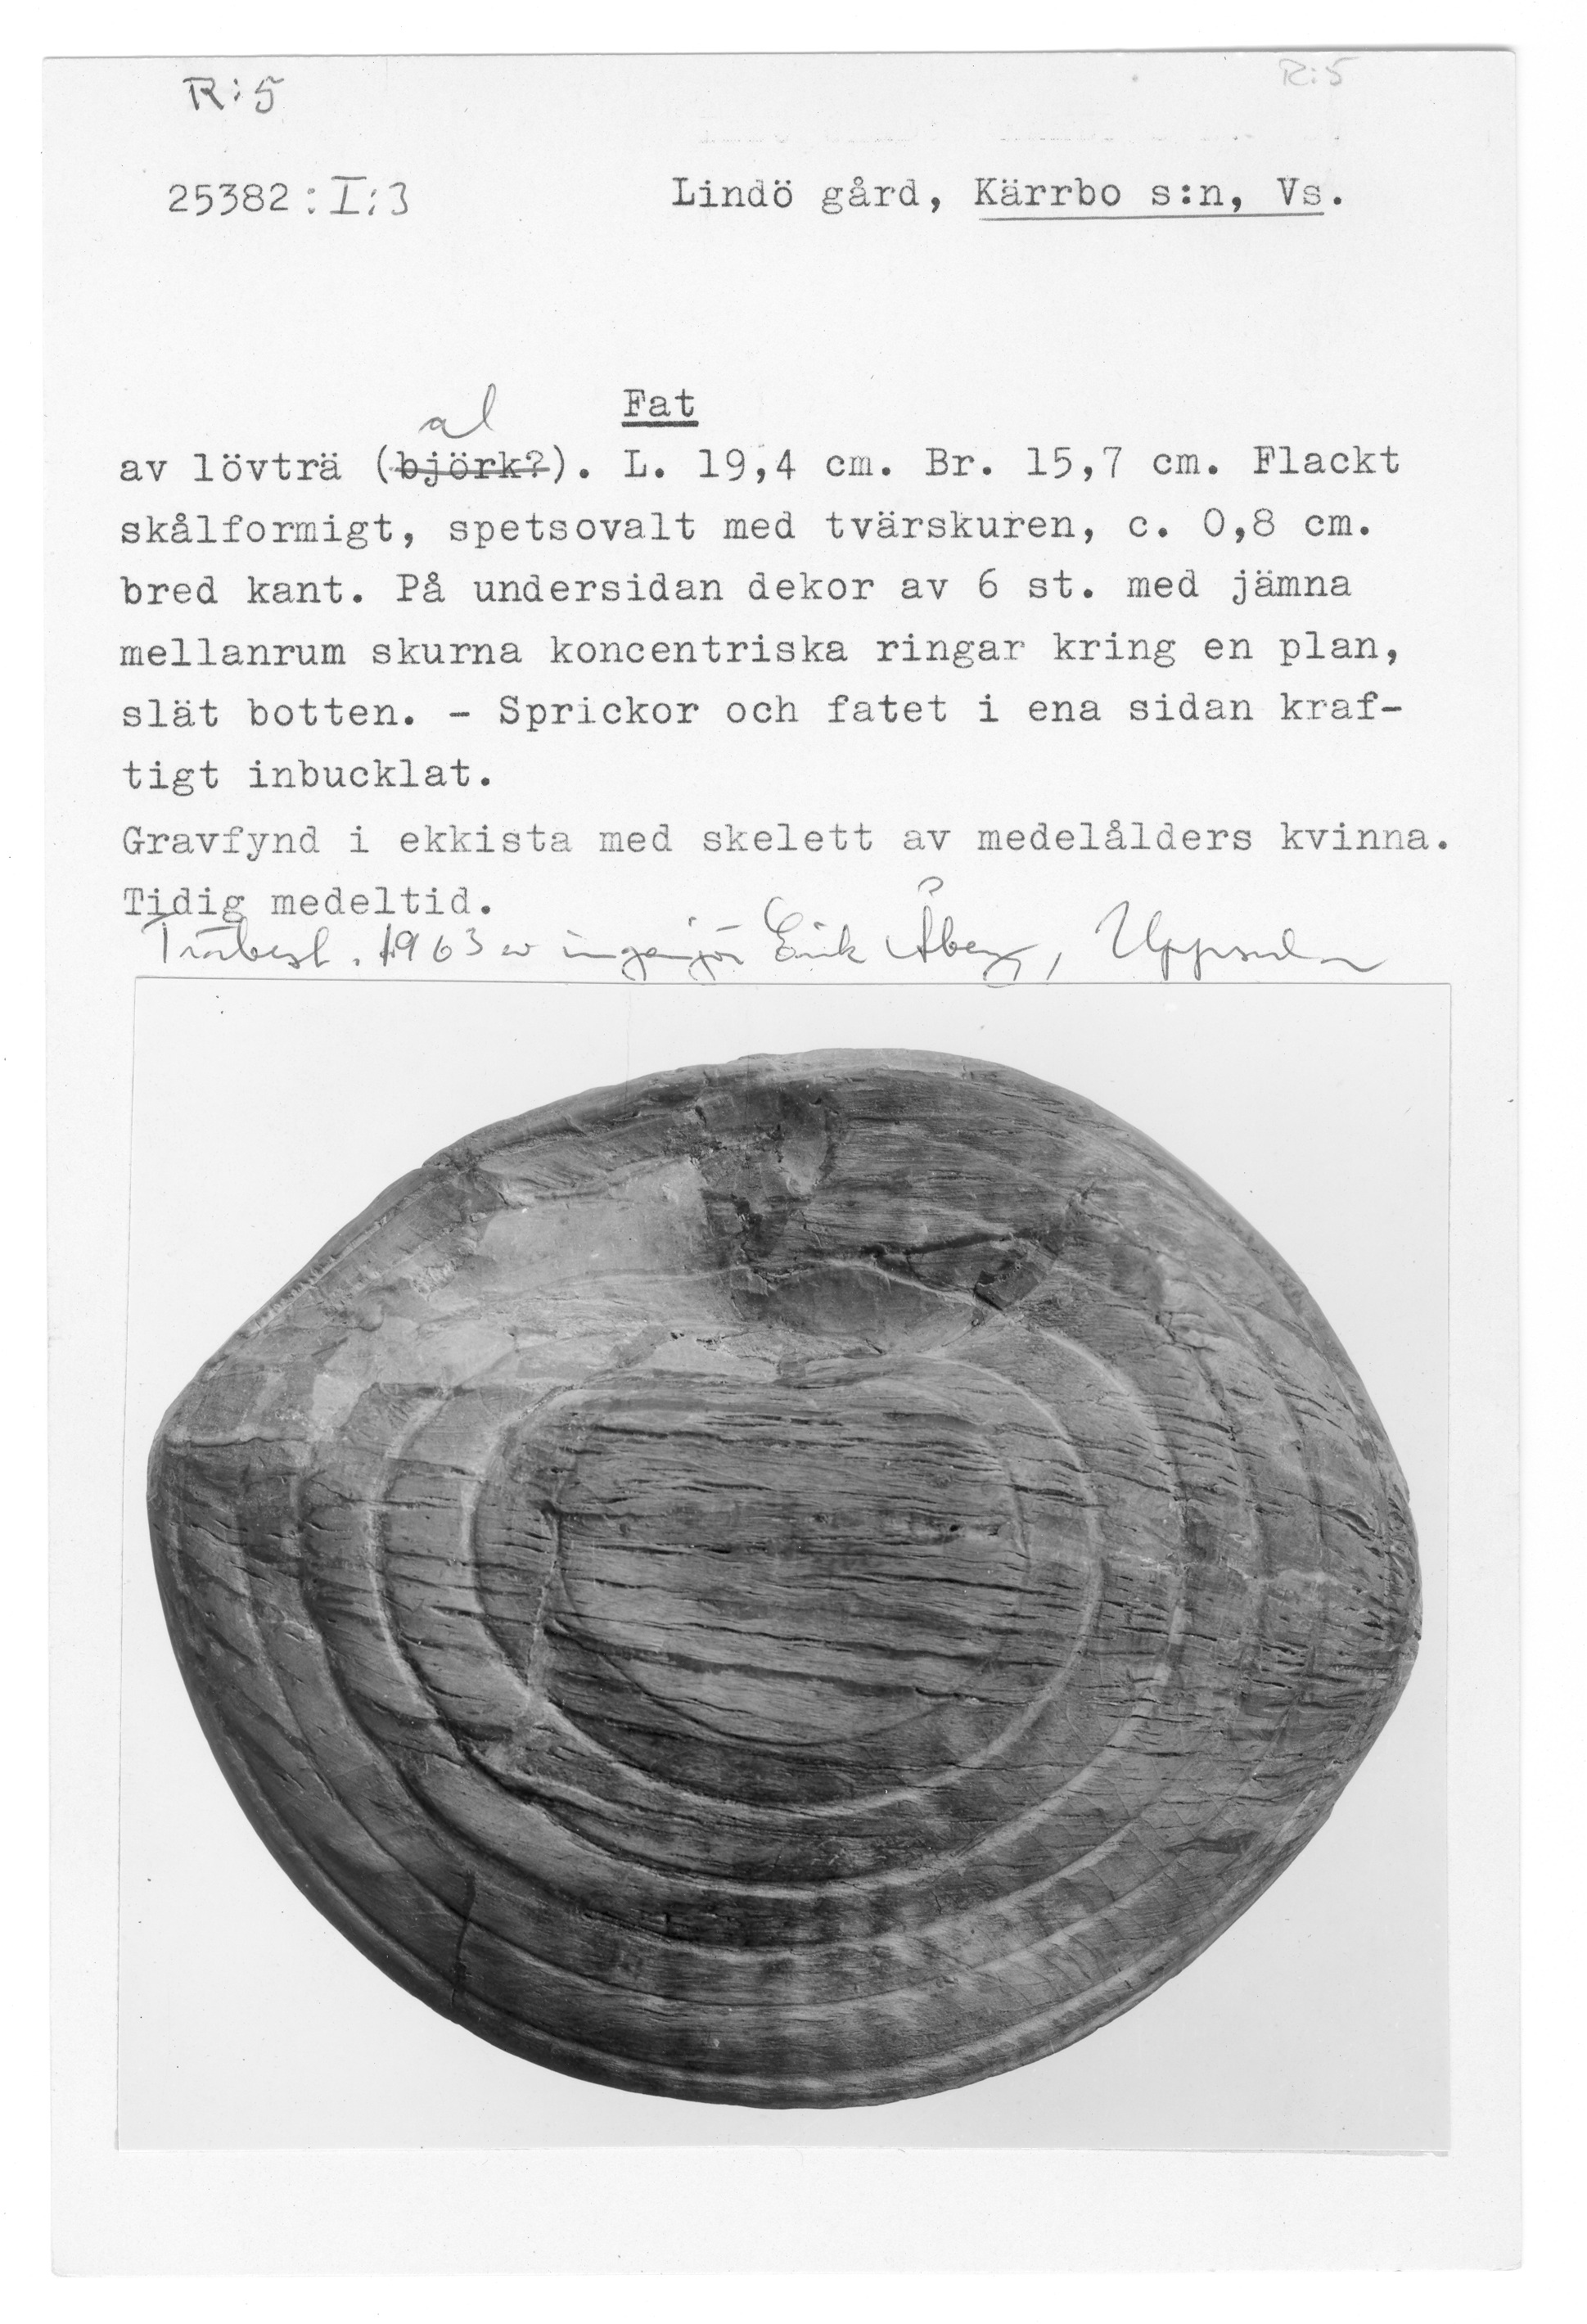 R:5
R:5
25382:I:3 Lindö gård, Kärrbo s:n, Vs.
Fat
al
av lövträ (björk?). L. 19,4 cm. Br. 15,7 cm. Flackt
skålformigt, spetsovalt med tvärskuren, c. 0,8 cm.
bred kant. På undersidan dekor av 6 st. med jämna
mellanrum skurna koncentriska ringar kring en plan,
slät botten. - Sprickor och fatet i ena sidan kraf-
tigt inbucklat.
Gravfynd i ekkista med skelett av medelålders kvinna.
Tidig medeltid.
Träbest. 1963 av ingenjör Erik Åberg, Uppsala